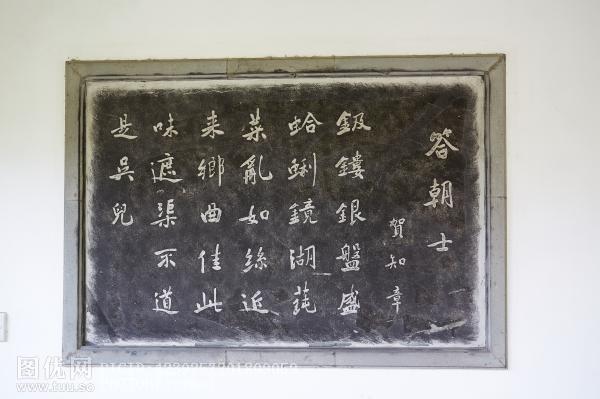 答朝士
賀知章
鈒鏤銀盤盛
蛤蜊鏡湖蒓
菜亂如絲近
来鄉曲佳此
味遮渠不道
是吳兒
图优网
www.tuu.so